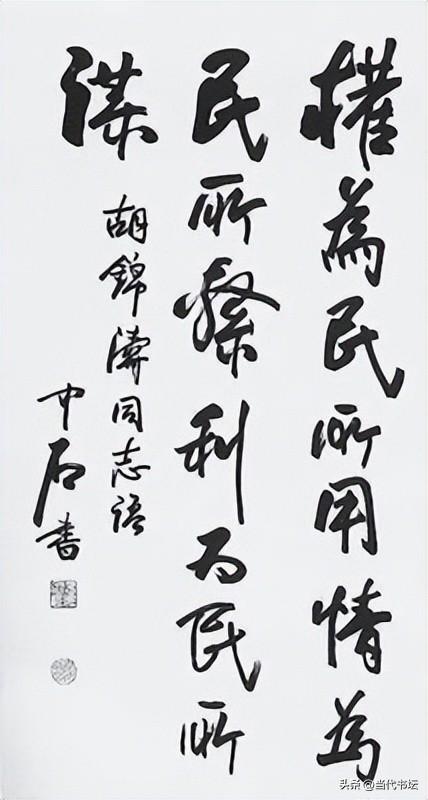 權為民所用情為
民所繫利为民所
谋
胡錦濤同志语
中石書
头条 @当代书坛